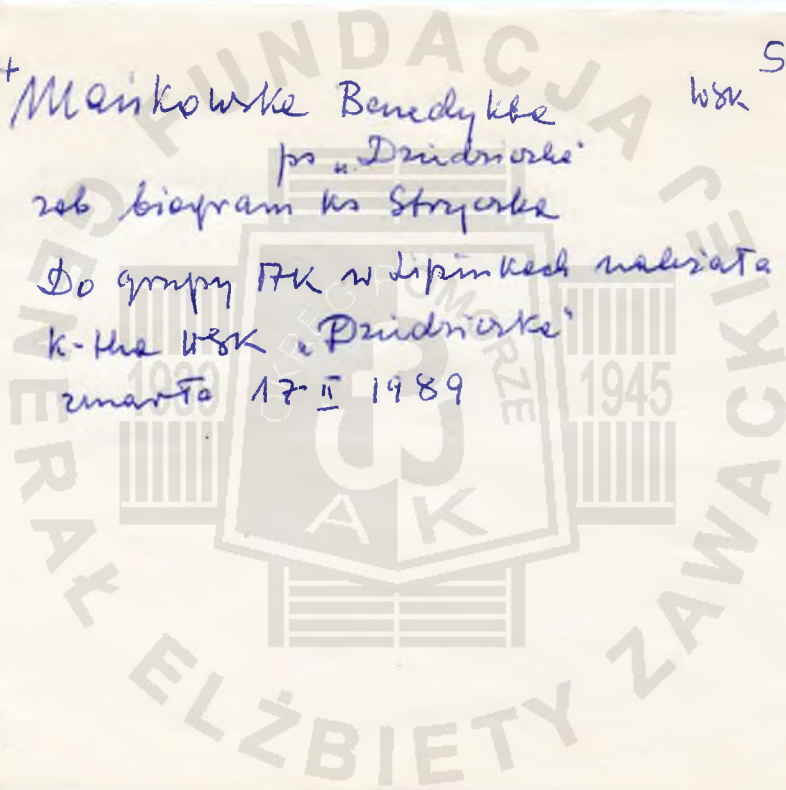 + Mańkowska Benedykta WSK S
ps „Dziedziczka”
zob biogram ks Stryczka
Do grupy AK w Lipinkach należała
k-tka WSK „Dziedziczka”
zmarła 17 II 1989
FUNDACJA GENERAŁ ELŻBIETY ZAWACKIEJ
OKRĘG POMORZE
1939 1945
AK